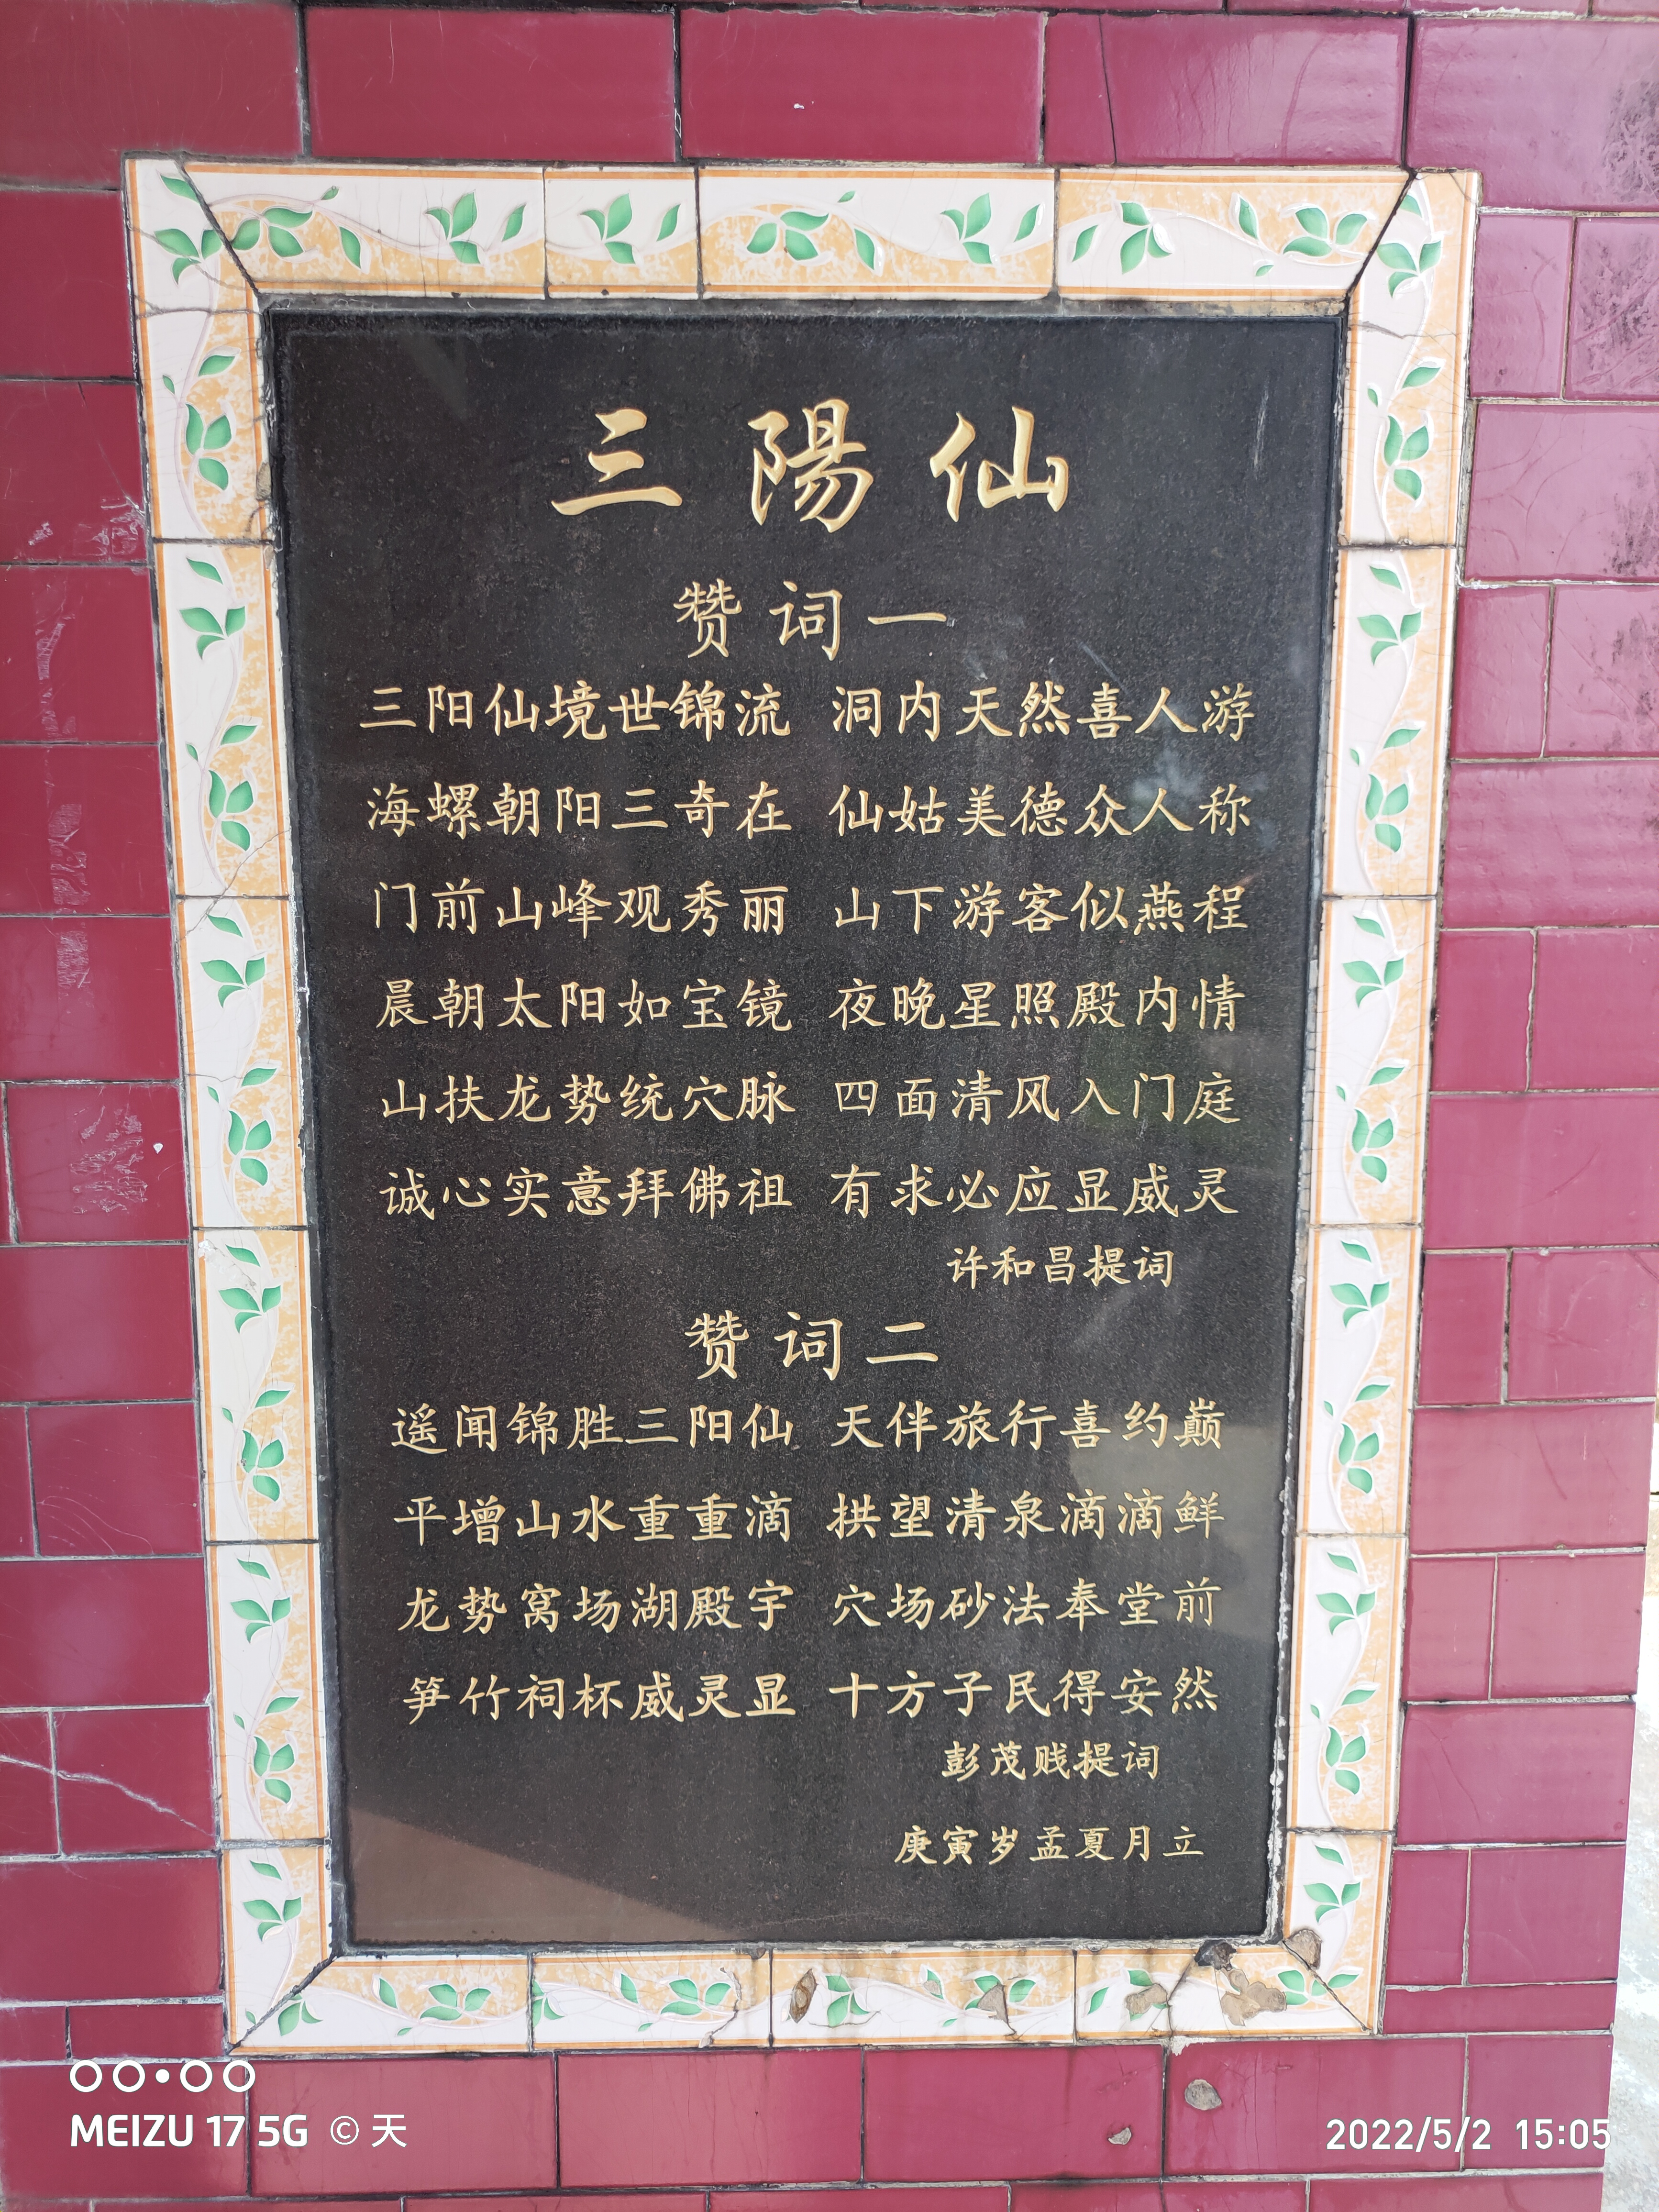 三陽仙
赞词一
三阳仙境世锦流 洞内天然喜人游
海螺朝阳三奇在 仙姑美德众人称
门前山峰观秀丽 山下游客似燕程
晨朝太阳如宝镜 夜晚星照殿内情
山扶龙势统穴脉 四面清风入门庭
诚心实意拜佛祖 有求必应显威灵
许和昌提词
赞词二
遥闻锦胜三阳仙 天伴旅行喜约巅
平增山水重重滴 拱望清泉滴滴鲜
龙势窝场湖殿宇 穴场砂法奉堂前
笋竹祠杯威灵显 十方子民得安然
彭茂贱提词
庚寅岁孟夏月立
MEIZU 17 5G © 天
2022/5/2 15:05